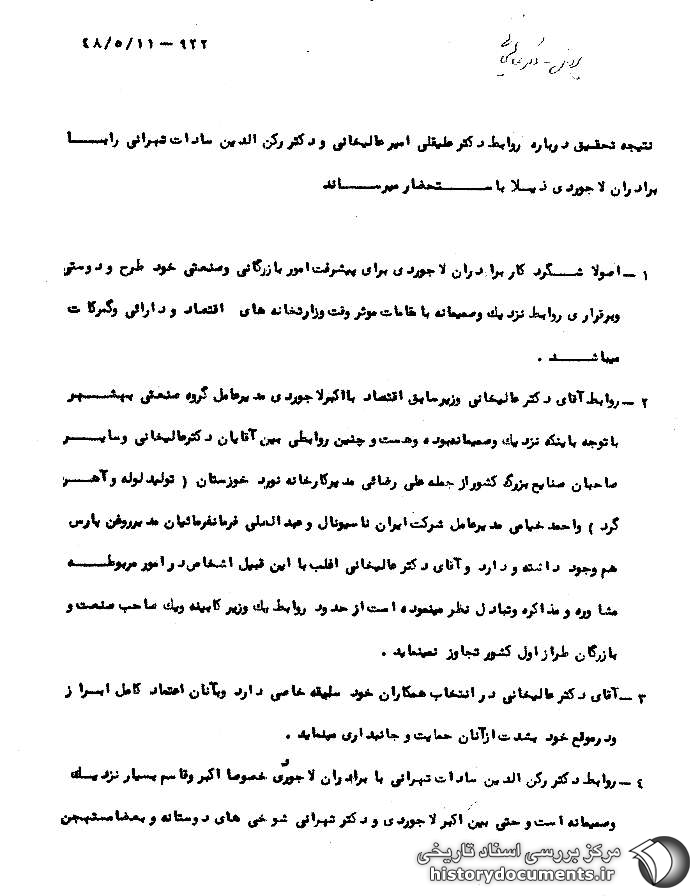 ۹۲۲ - ۴۸/۵/۱۱
نتیجه تحقیق درباره روابط دکتر علیقلی امیر عالیخانی و دکتر رکن الدین سادات تهرانی را با
برادران لاجوردی ذیلا با ستحضار میرساند
۱ - اصولا شگرد کار برادران لاجوردی برای پیشرفت امور بازرگانی وصنعتی خود طرح و دوستی
وبرقراری روابط نزدیك وصمیمانه با مقامات موثر وقت وزارتخانه های اقتصاد و دارائی وگمرکات
میباشد .
۲ - روابط آقای دکتر عالیخانی وزیرسابق اقتصاد بااکبرلاجوردی مدیرعامل گروه صنعتی بهشهر
با توجه باینکه نزدیك وصمیمانه‌بوده وهست و چنین روابطی بین آقایان دکترعالیخانی وسایر
صاحبان صنایع بزرگ کشوراز جمله علی رضائی مدیرکارخانه نورد خوزستان ( تولید لوله و آهن
گرد ) واحمد خیامی مدیرعامل شرکت ایران ناسیونال و عبدالعلی فرمانفرمائیان مدیرروغن پارس
هم وجود داشته و دارد و آقای دکتر عالیخانی اغلب با این قبیل اشخاص در امور مربوطه
مشاوره و مذاکره وتبادل نظر مینموده است از حدود روابط یك وزیر کابینه ویك صاحب صنعت و
بازرگان طراز اول کشور تجاوز نمینماید .
۳ - آقای دکتر عالیخانی در انتخاب همکاران خود سلیقه خاصی دارد وبآنان اعتماد کامل ابراز
ودرموقع خود بشدت ازآنان حمایت و جانبداری مینماید .
۴ - روابط دکتر رکن الدین سادات تهرانی با برادران لاجوردی خصوصا اکبر وقاسم بسیار نزدیك
وصمیمانه است و حتی بین اکبر لاجوردی و دکتر تهرانی شوخی های دوستانه و بعضا مستهجن
مرکز بررسی اسناد تاریخی
historydocuments.ir